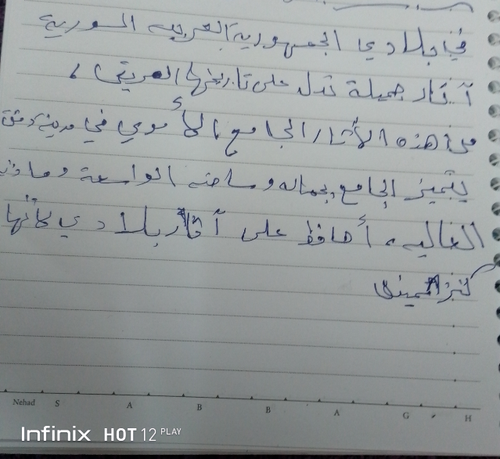 في بلادي الجمهورية العربية السورية
آثار جميلة تدل على تاريخها العريق ،
من هذه الأثار الجامع الأموي في مدينة دمشق
يتميز الجامع بجماله وساحته الواسعة ومآذنه
العاليه ، أحافظ على آثار بلادي لأنها
كنز ثمين
Nehad S A B B A G H
Infinix HOT 12 PLAY